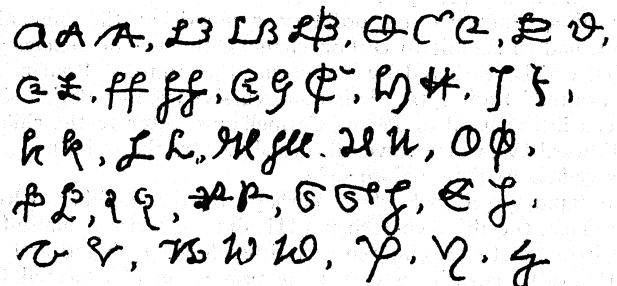 a A A, B B B, C C C, D D,
E E, F F, G G G, H H, J J,
K K, L L, M M. N N, O O,
P P, Q Q, R R, S S S, T T.
V V, W W W, X. Y. Z